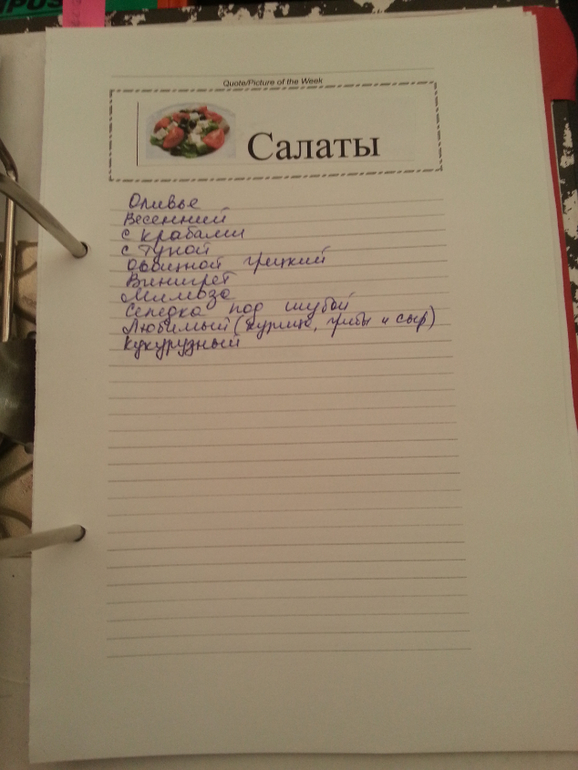 Quote/Picture of the Week
Салаты
Оливье
Весенний
с крабами
с туной
Овощной грецкий
Винигрет
Мимоза
Селедка под шубой
Любимый (курица, грибы и сыр)
Кукурузный